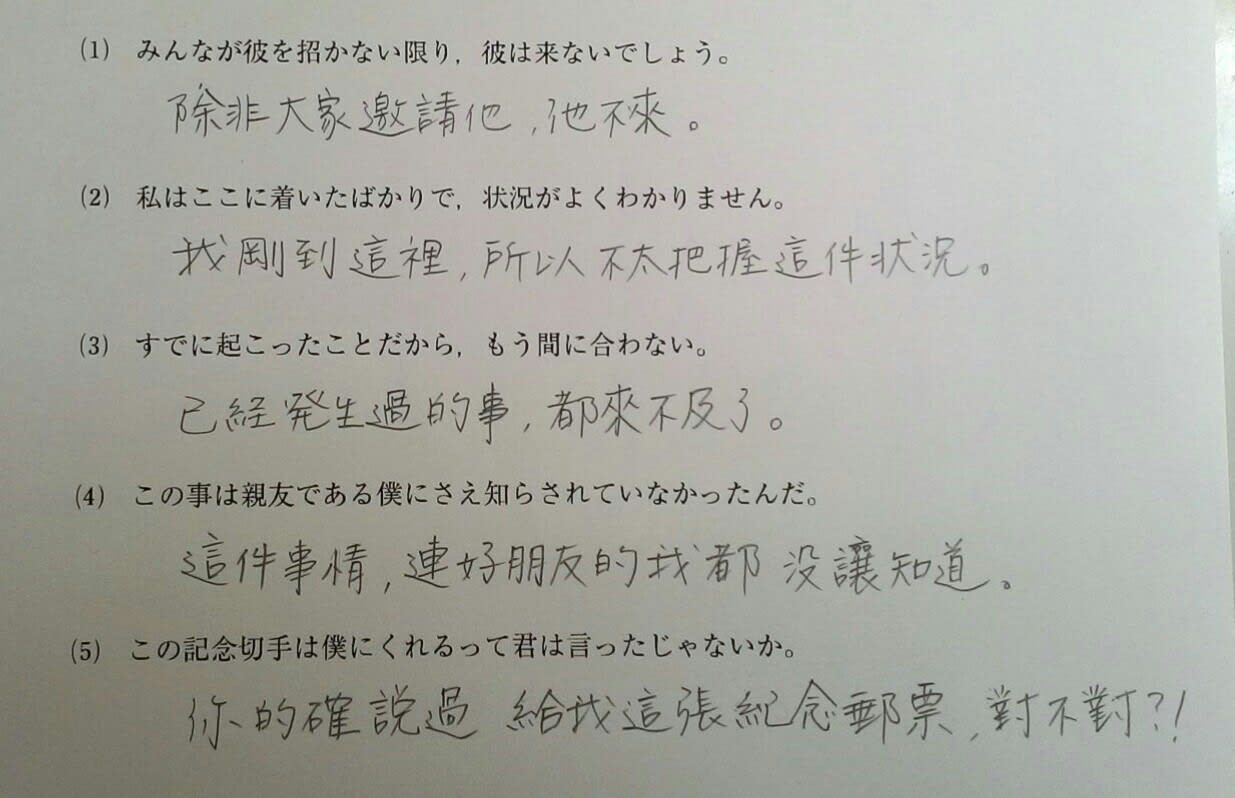 (1) みんなが彼を招かない限り，彼は来ないでしょう。
除非大家邀請他，他不來。
(2) 私はここに着いたばかりで，状況がよくわかりません。
我剛到這裡，所以不太把握這件状況。
(3) すでに起こったことだから，もう間に合わない。
已経発生過的事，都來不及了。
(4) この事は親友である僕にさえ知らされていなかったんだ。
這件事情，連好朋友的我都没讓知道。
(5) この記念切手は僕にくれるって君は言ったじゃないか。
你的確説過 給我這張紀念郵票，對不對?!